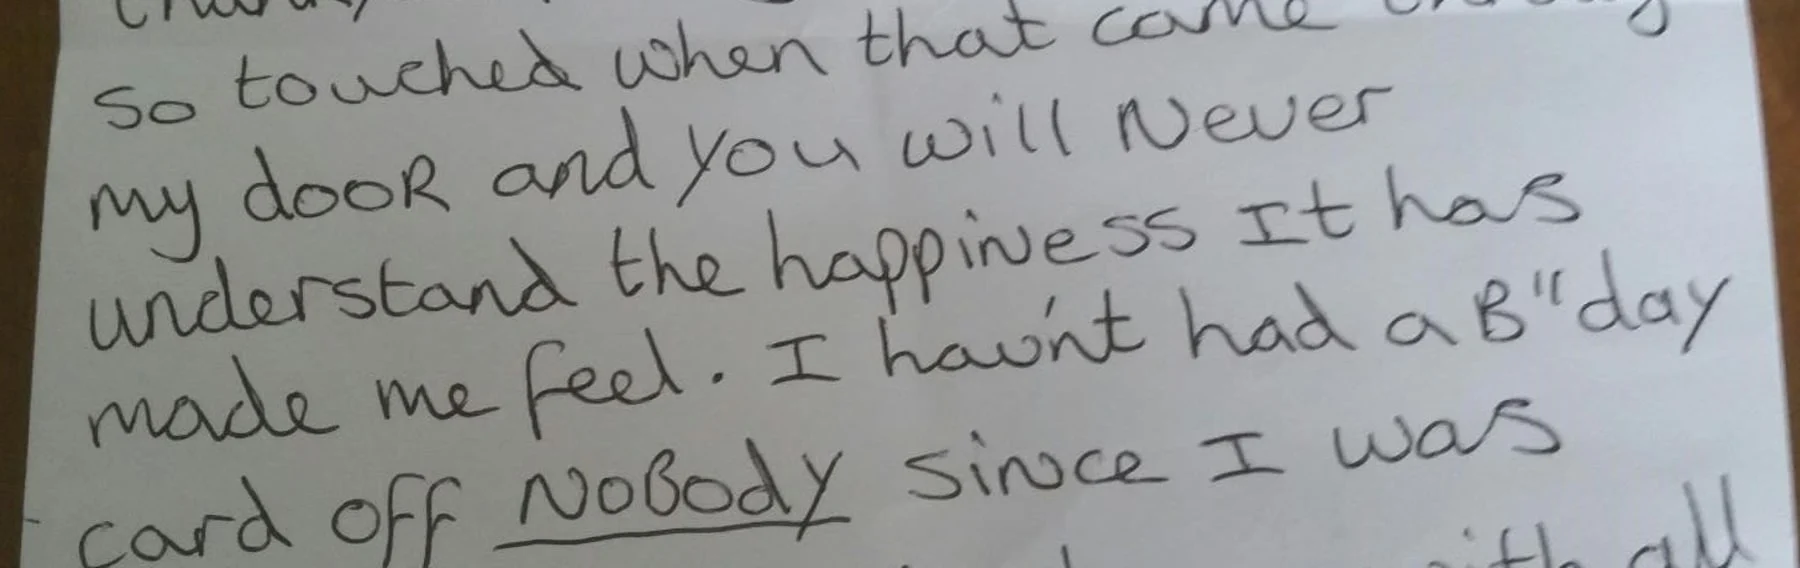 so touched when that came
my dooR and you will Never
understand the happiness It has
made me feel. I hav'nt had a B"day
card off NoBody since I was
with all